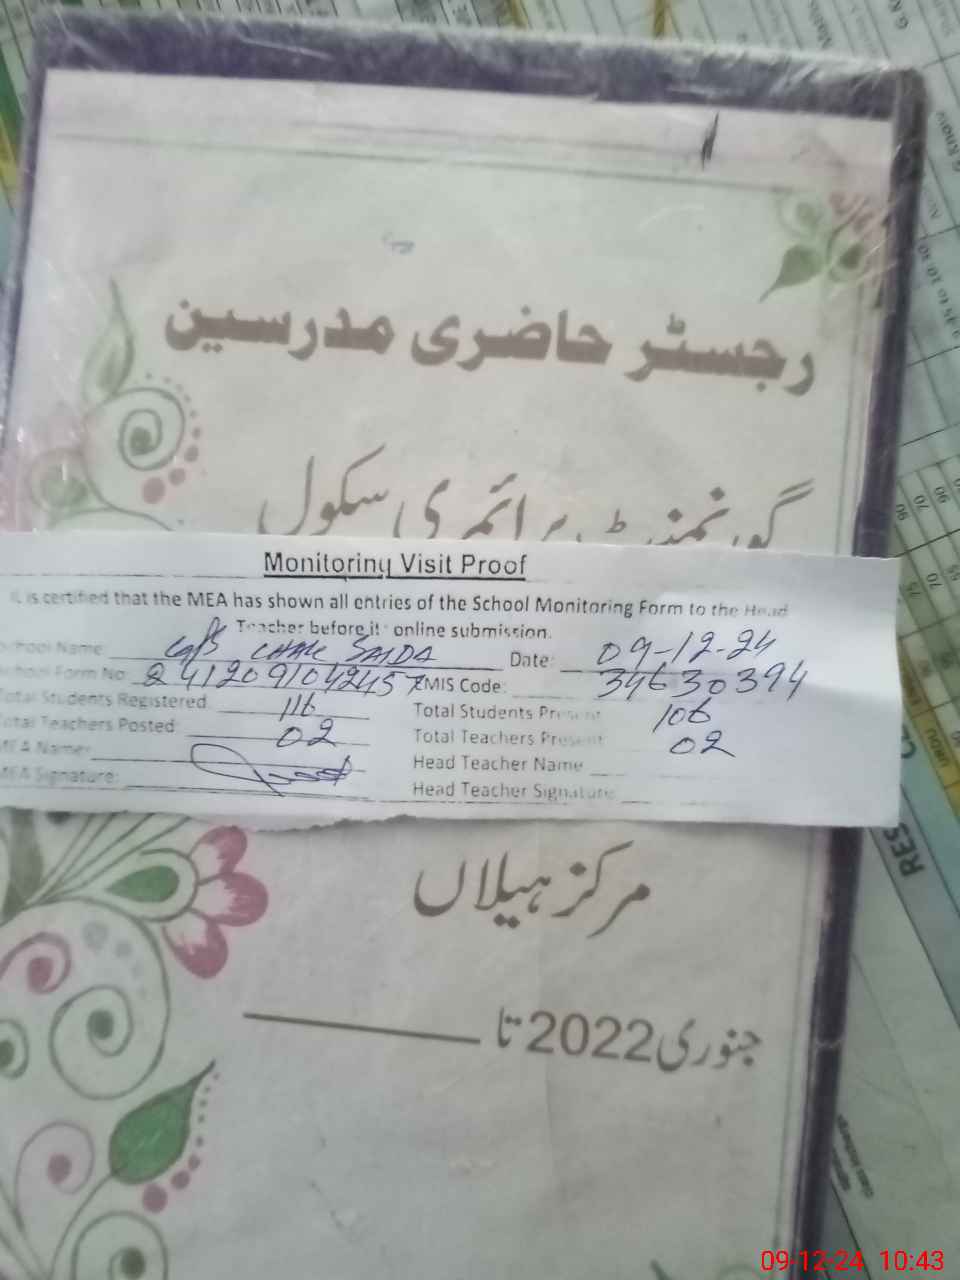 رجسٹر حاضری مدرسین
گورنمنٹ پرائمری سکول
Monitoring Visit Proof
It is certified that the MEA has shown all entries of the School Monitoring Form to the Head
Teacher before it's online submission.
School Name: GPS CHAK SAIDA Date: 09-12-24
School Form No 241209104245 EMIS Code: 34630394
Total Students Registered 116 Total Students Present 106
Total Teachers Posted: 02 Total Teachers Present 02
MEA Name: Head Teacher Name
MEA Signature: Head Teacher Signature
مرکز ہیلاں
جنوری 2022 تا
RES
09-12-24 10:43